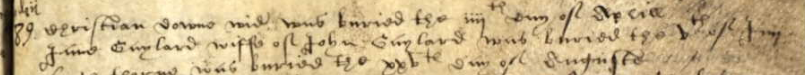 Christian downe wid. was buried the iiijth day of Aprill
Jane Guylard wiffe of John Guylard was buried the vth of
was buried the xxvth day of Auguste